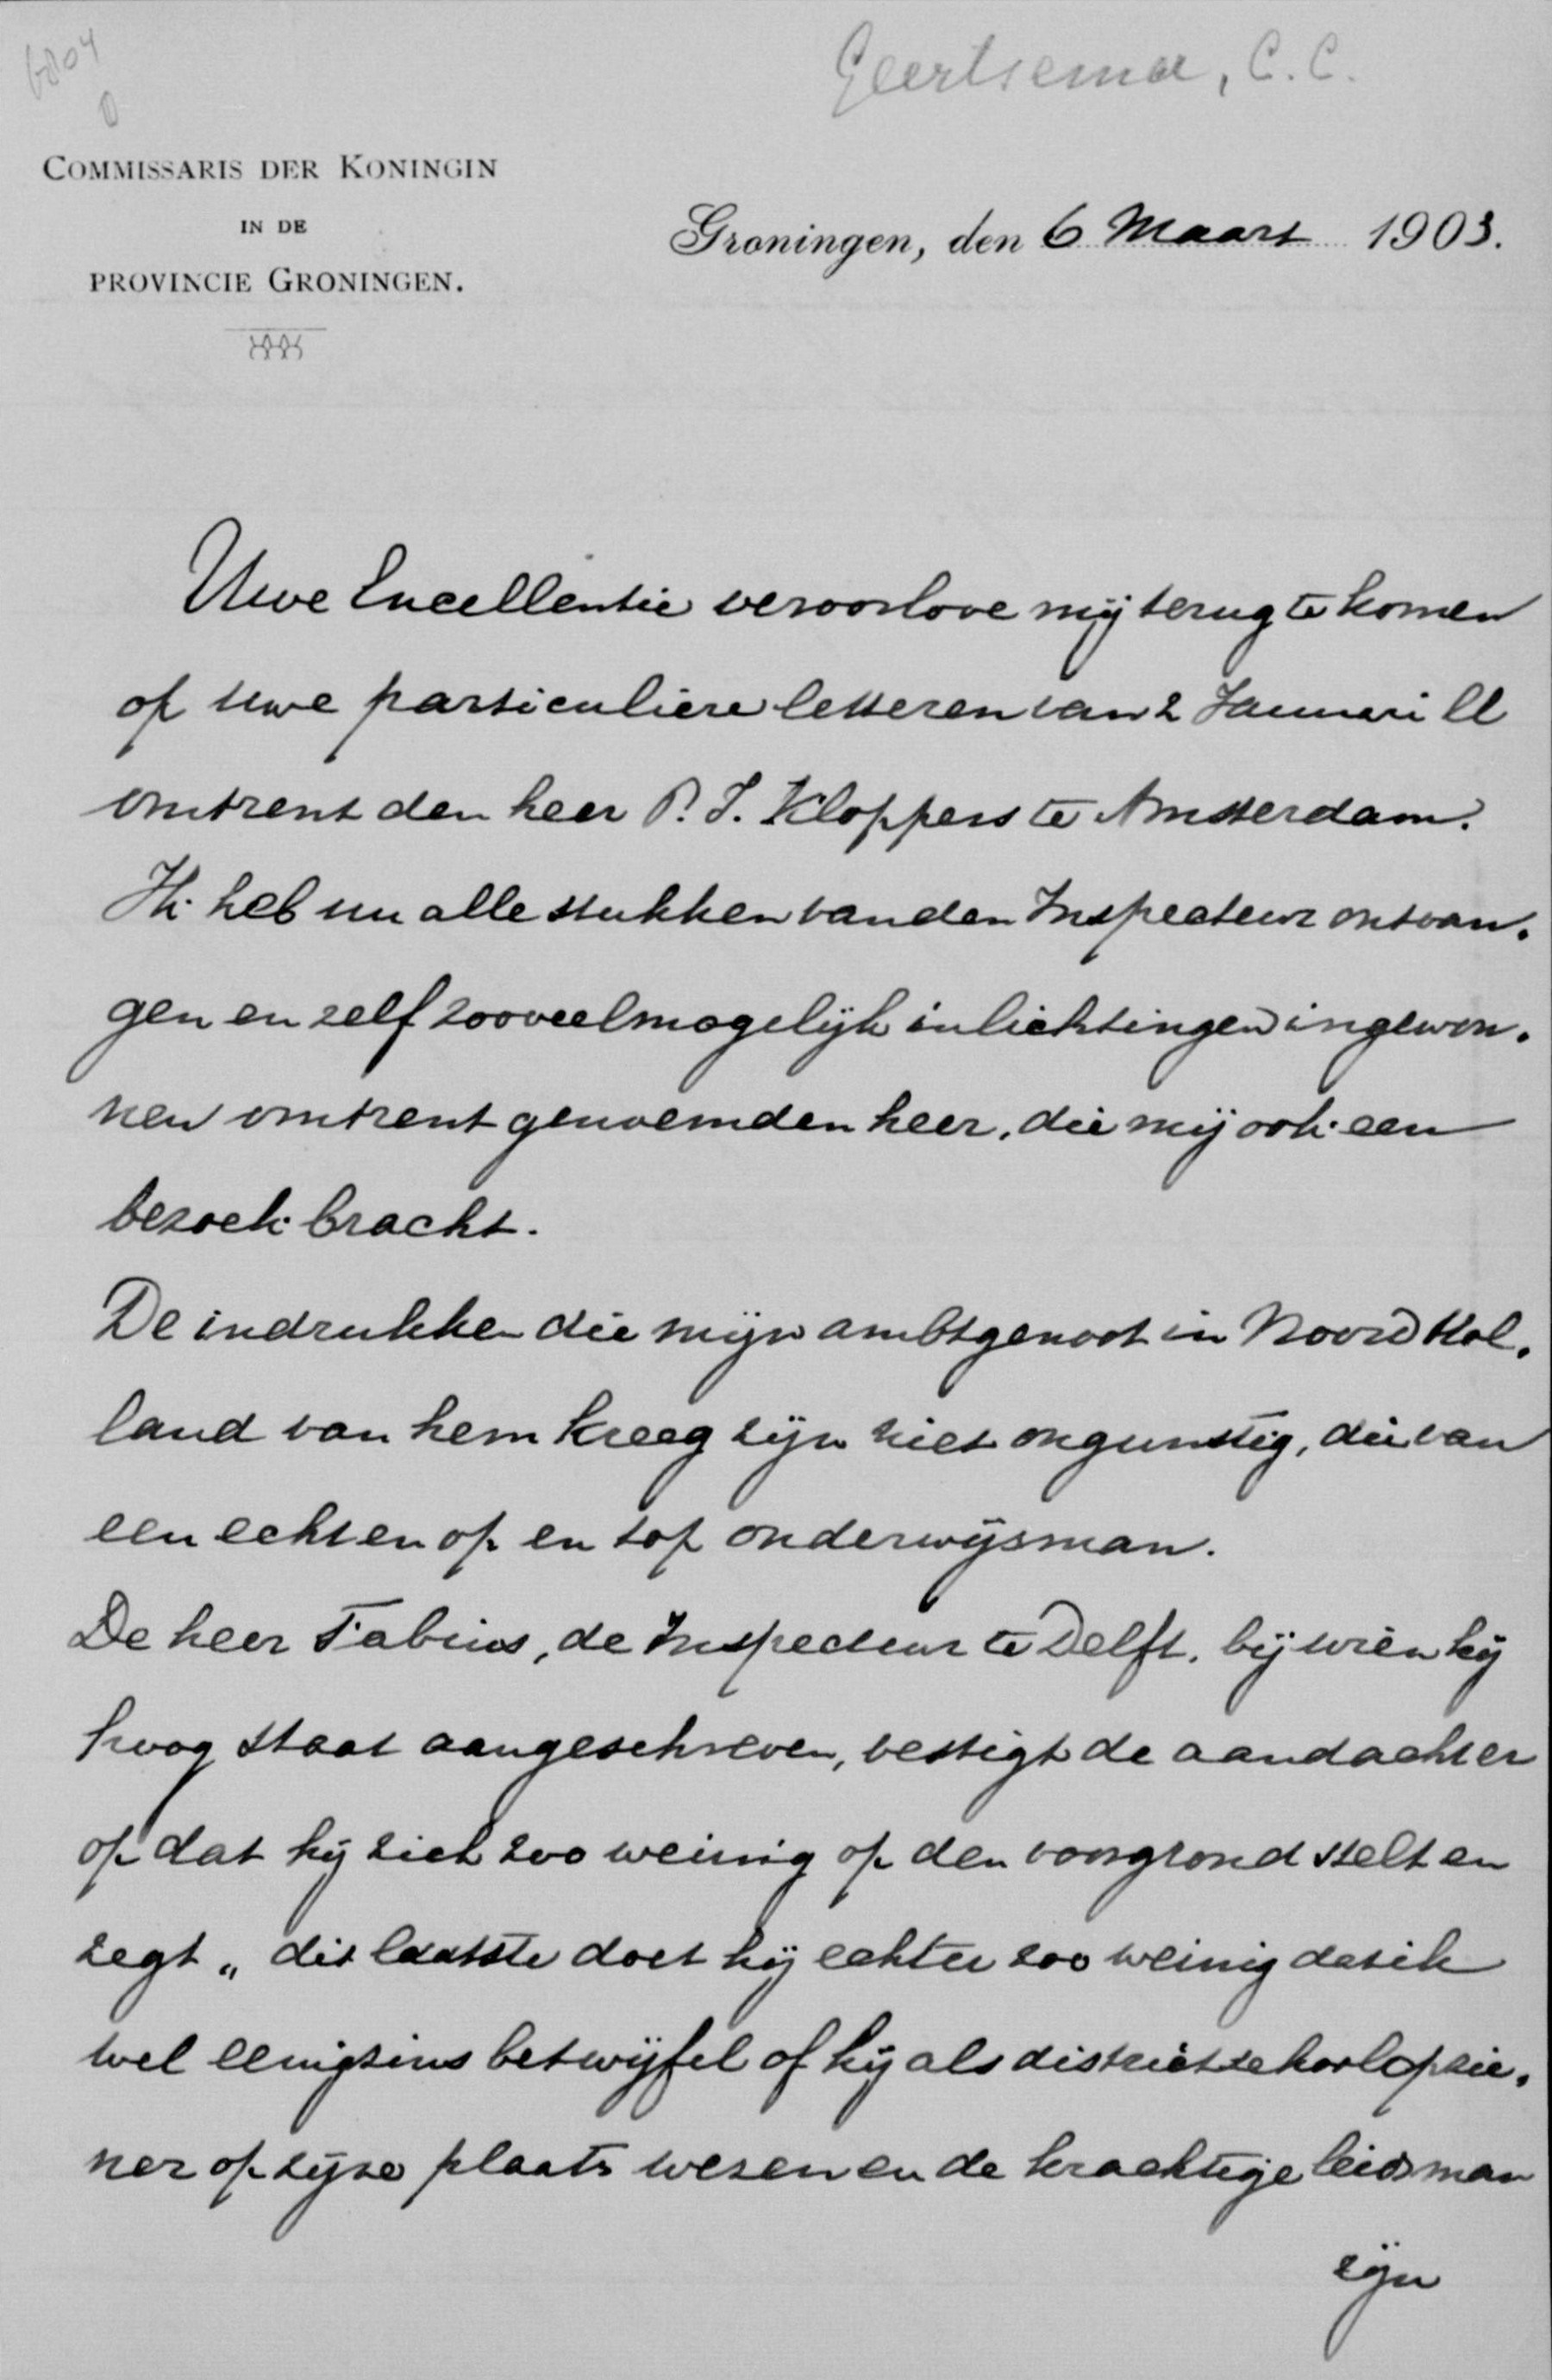 6804
0
Geertsema, C.C.
COMMISSARIS DER KONINGIN
IN DE
PROVINCIE GRONINGEN.
Groningen, den 6 Maart 1903.
Uwe Excellentie veroorlove mij terug te komen
op uwe particuliere letteren van 2 Januari ll
omtrent den heer P. J. Kloppers te Amsterdam.
Ik heb nu alle stukken van den Inspecteur ontvan-
gen en zelf zooveel mogelijk inlichtingen ingewon-
nen omtrent genoemden heer, die mij ook een
bezoek bracht.
De indrukken die mijn ambtgenoot in Noord Hol-
land van hem kreeg zijn niet ongunstig, die van
een echten op en top onderwijsman.
De heer Fabius, de Inspecteur te Delft, bij wien hij
hoog staat aangeschreven, vestigt de aandacht er
op dat hij zich zoo weinig op den voorgrond stelt en
zegt „dit laatste doet hij echter zoo weinig dat ik
wel eenigzins betwijfel of hij als districtsschoolopzie-
ner op zijne plaats wezen en de krachtige leidsman
zijn